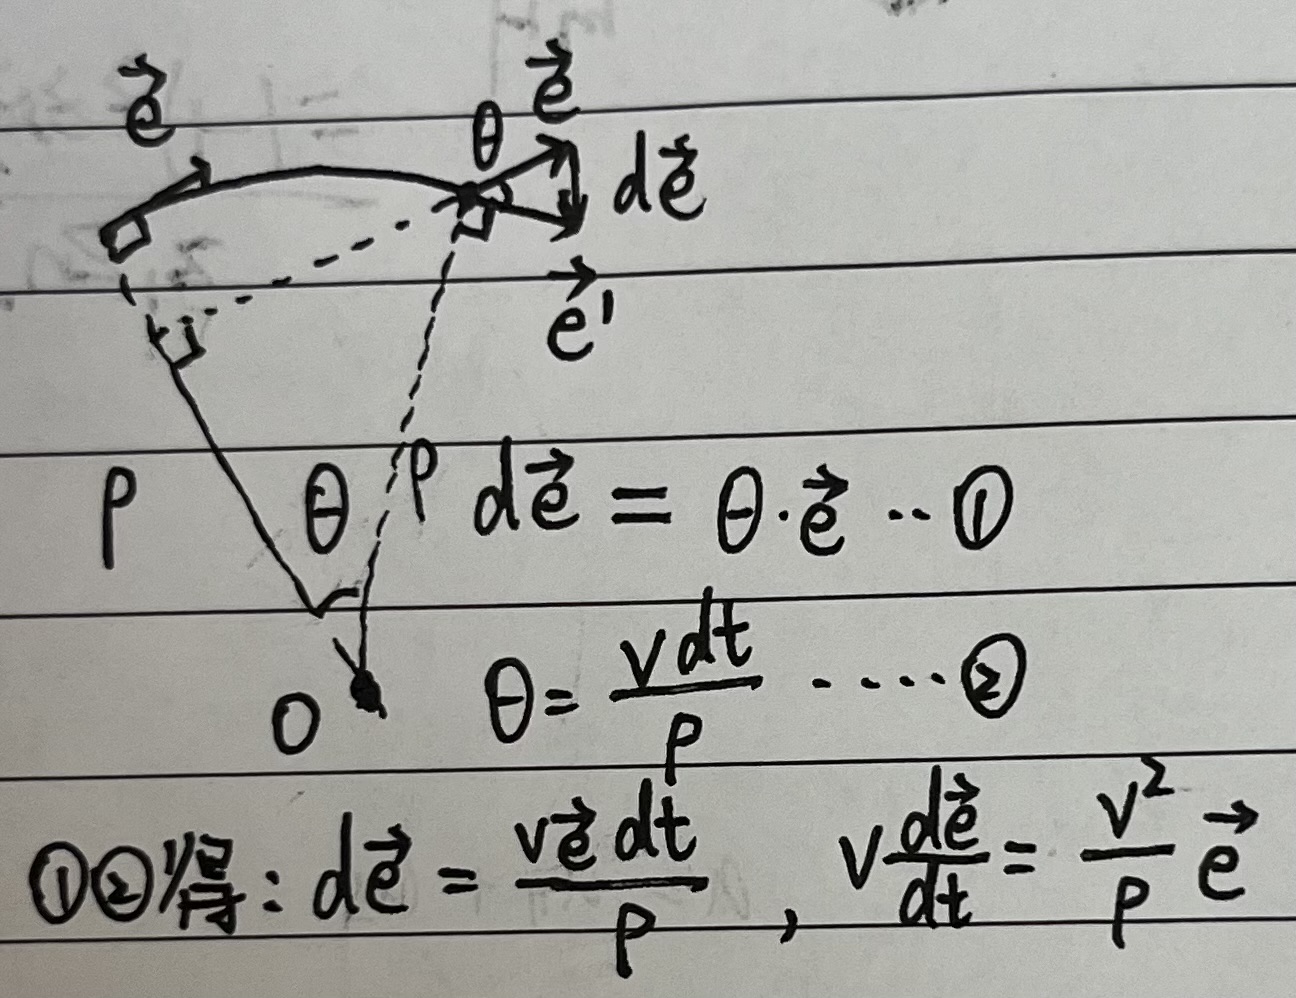 e⃗ θ e⃗
de⃗
e⃗'
ρ θ ρ de⃗ = θ·e⃗ ·· ①
O θ = vdt/ρ ····· ②
①②得: de⃗ = ve⃗dt/ρ , v de⃗/dt = v²/ρ e⃗